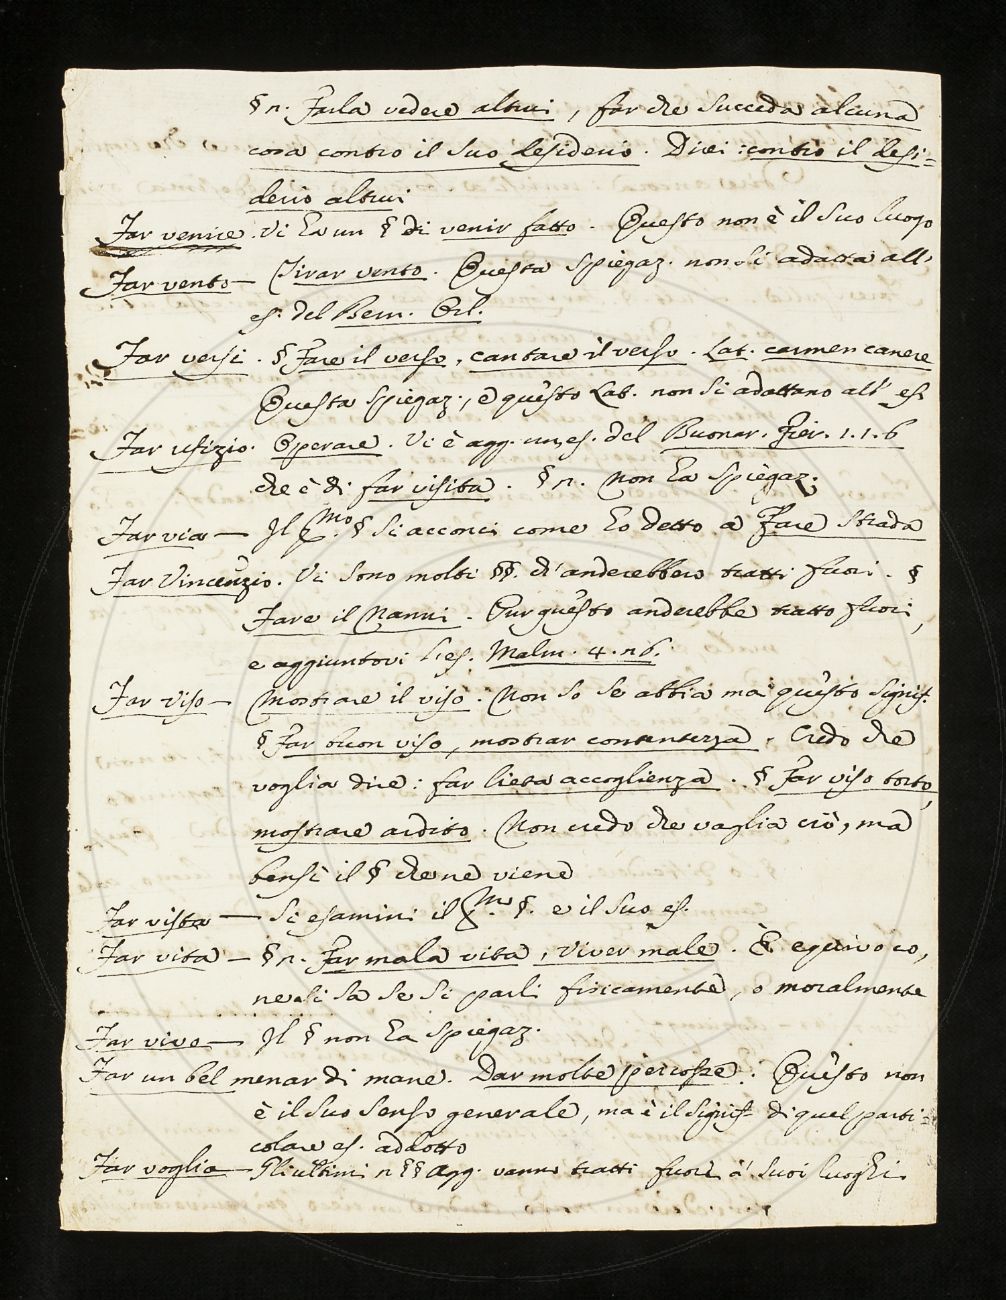 § n. Farla vedere altrui, far che succeda alcuna
cosa contro il suo desiderio. Direi: contro il desi=
derio altrui
Far venire. Vi ha un § di venir fatto. Questo non è il suo luogo
Far vento — Tirar vento. Questa spiegaz. non si adatta all'
es. del Bern. Orl.
Far versi. § Fare il verso, cantare il verso. Lat. carmen canere
Questa spiegaz., e questo Lat. non si adattano all' es.
Far ufizio. Operare. Vi è agg. un es. del Buonar. Fier. 1.1.6
che è di far visita. § n. Non ha spiegaz.
Far via — Il § si acconci come ho detto a Fare strada
Far Vincenzio. Vi sono molti §§. ch'anderebbero tratti fuori. §
Fare il Nanni. Pur questo anderebbe tratto fuori,
e aggiuntovi l'es. Malm. 4. n6.
Far viso — Mostrare il viso. Non so se abbia mai questo signif.
§ Far buon viso, mostrar contentezza. Credo che
voglia dire: far lieta accoglienza. § Far viso torto,
mostrare ardito. Non credo che vaglia ciò, ma
bensì il § che ne viene
Far vista — Si esamini il §. e il suo es.
Far vita — § n. Far mala vita, viver male. È equivoco,
ne si sa se si parli fisicamente, o moralmente
Far vivo — Il § non ha spiegaz.
Far un bel menar di mane. Dar molte percosse. Questo non
è il suo senso generale, ma è il signif. di quel parti=
colare es. addotto
Far voglia — Gli ultimi n §§ agg. vanno tratti fuori a' suoi luoghi